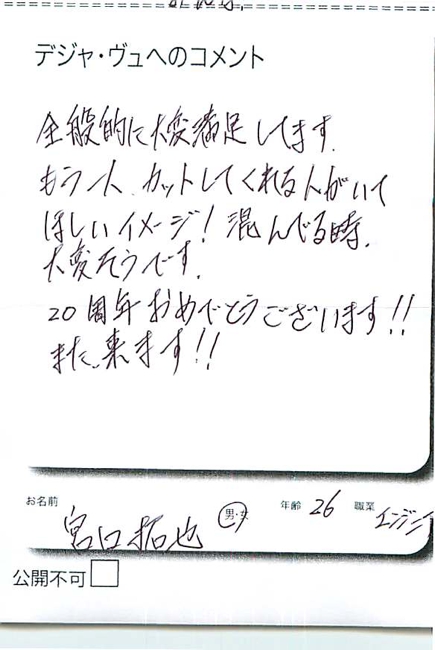 デジャ・ヴュへのコメント
全般的に大変満足してます.
もう一人 カットしてくれる人がいて
ほしいイメージ! 混んでる時.
大変そうです.
20周年おめでとうございます!!
また、来ます!!
お名前 宮口拓也 男・女 年齢 26 職業 エンジニ
公開不可